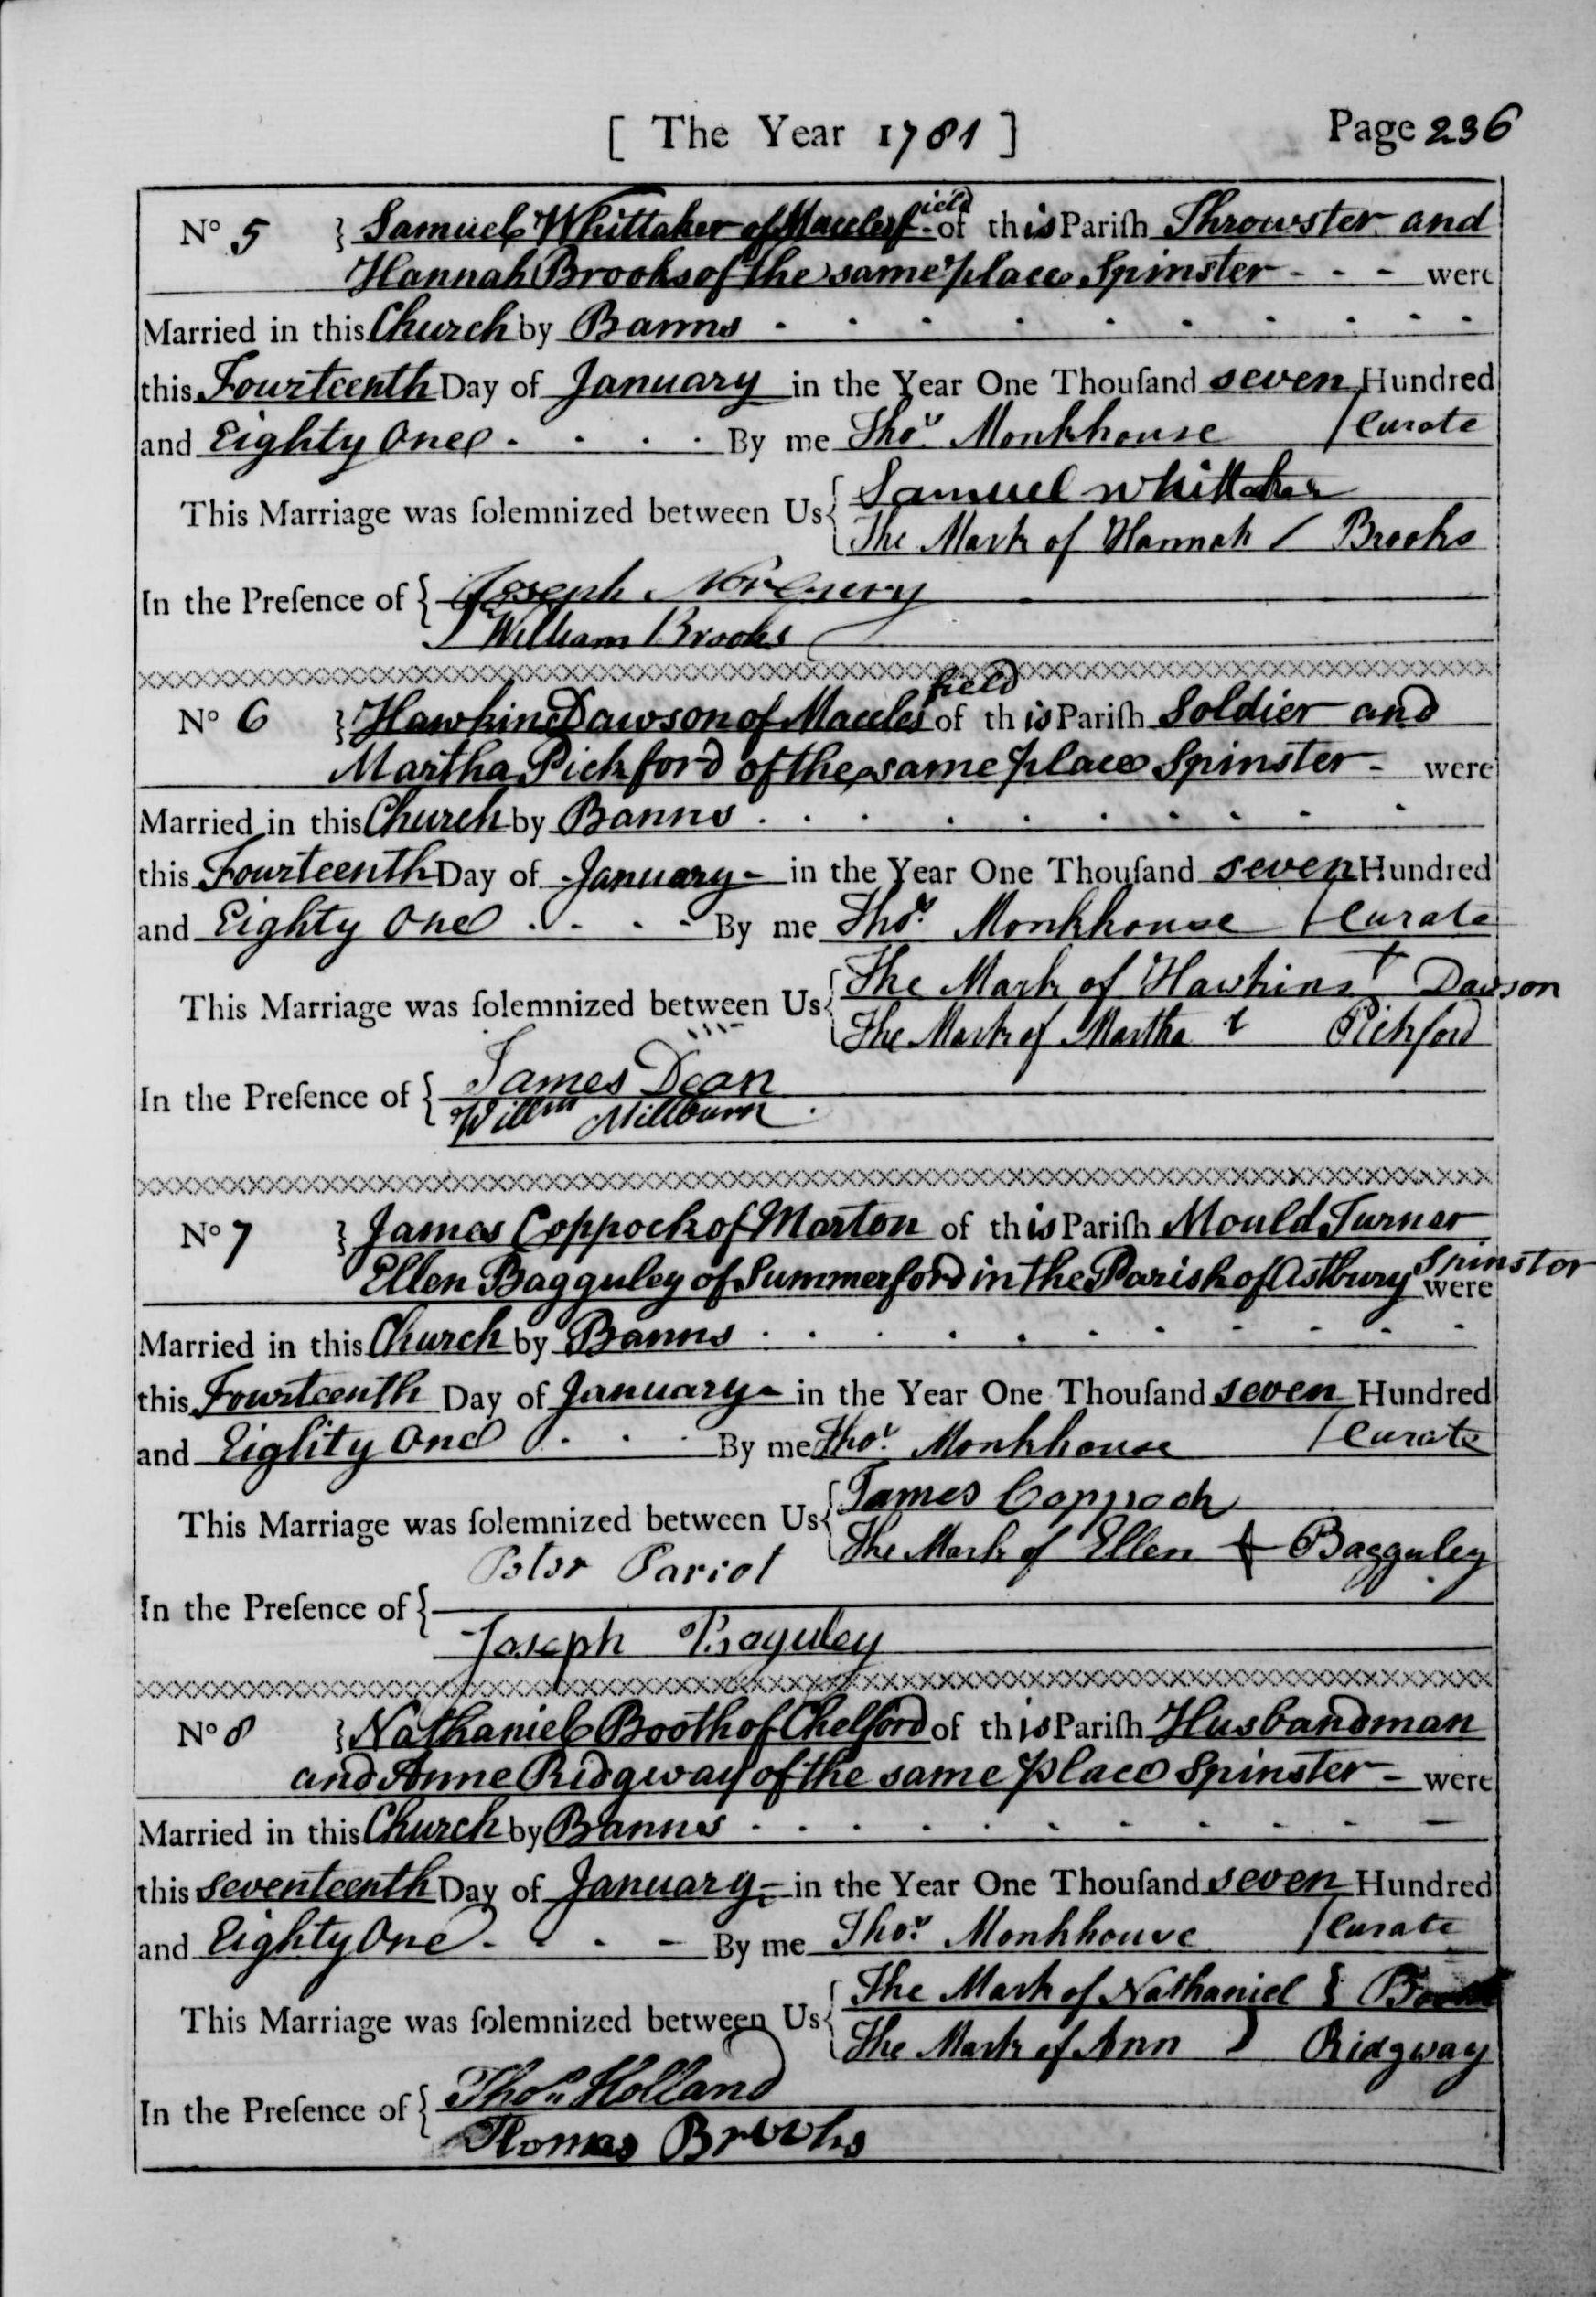 [ The Year 1781 ] Page 236
No 5 } Samuel Whittaker of Macclesfield of this Parish Throwster and
Hannah Brooks of the same place Spinster - - - were
Married in this Church by Banns
this Fourteenth Day of January in the Year One Thousand seven Hundred
and Eighty One By me Thos. Monkhouse / Curate
This Marriage was solemnized between Us { Samuel Whittaker
The Mark of Hannah / Brooks
In the Presence of { Joseph
William Brooks
No 6 } Hawkins Dawson of Macclesfield of this Parish Soldier and
Martha Pickford of the same place Spinster - were
Married in this Church by Banns
this Fourteenth Day of January - in the Year One Thousand seven Hundred
and Eighty One By me Thos. Monkhouse / Curate
This Marriage was solemnized between Us { The Mark of Hawkins + Dawson
The Mark of Martha + Pickford
In the Presence of { James Dean
Willm Millburn
No 7 } James Coppock of Marton of this Parish Mould Turner
Ellen Bagguley of Summerford in the Parish of Astbury Spinster were
Married in this Church by Banns
this Fourteenth Day of January - in the Year One Thousand seven Hundred
and Eighty One By me Thos. Monkhouse / Curate
This Marriage was solemnized between Us { James Coppock
The Mark of Ellen + Bagguley
In the Presence of { Peter Pariot
Joseph Baguley
No 8 } Nathaniel Booth of Chelford of this Parish Husbandman
and Anne Ridgway of the same place Spinster - were
Married in this Church by Banns
this seventeenth Day of January - in the Year One Thousand seven Hundred
and Eighty One By me Thos. Monkhouse / Curate
This Marriage was solemnized between Us { The Mark of Nathaniel } Booth
The Mark of Ann ) Ridgway
In the Presence of { Thos. Holland
Thomas Brooks